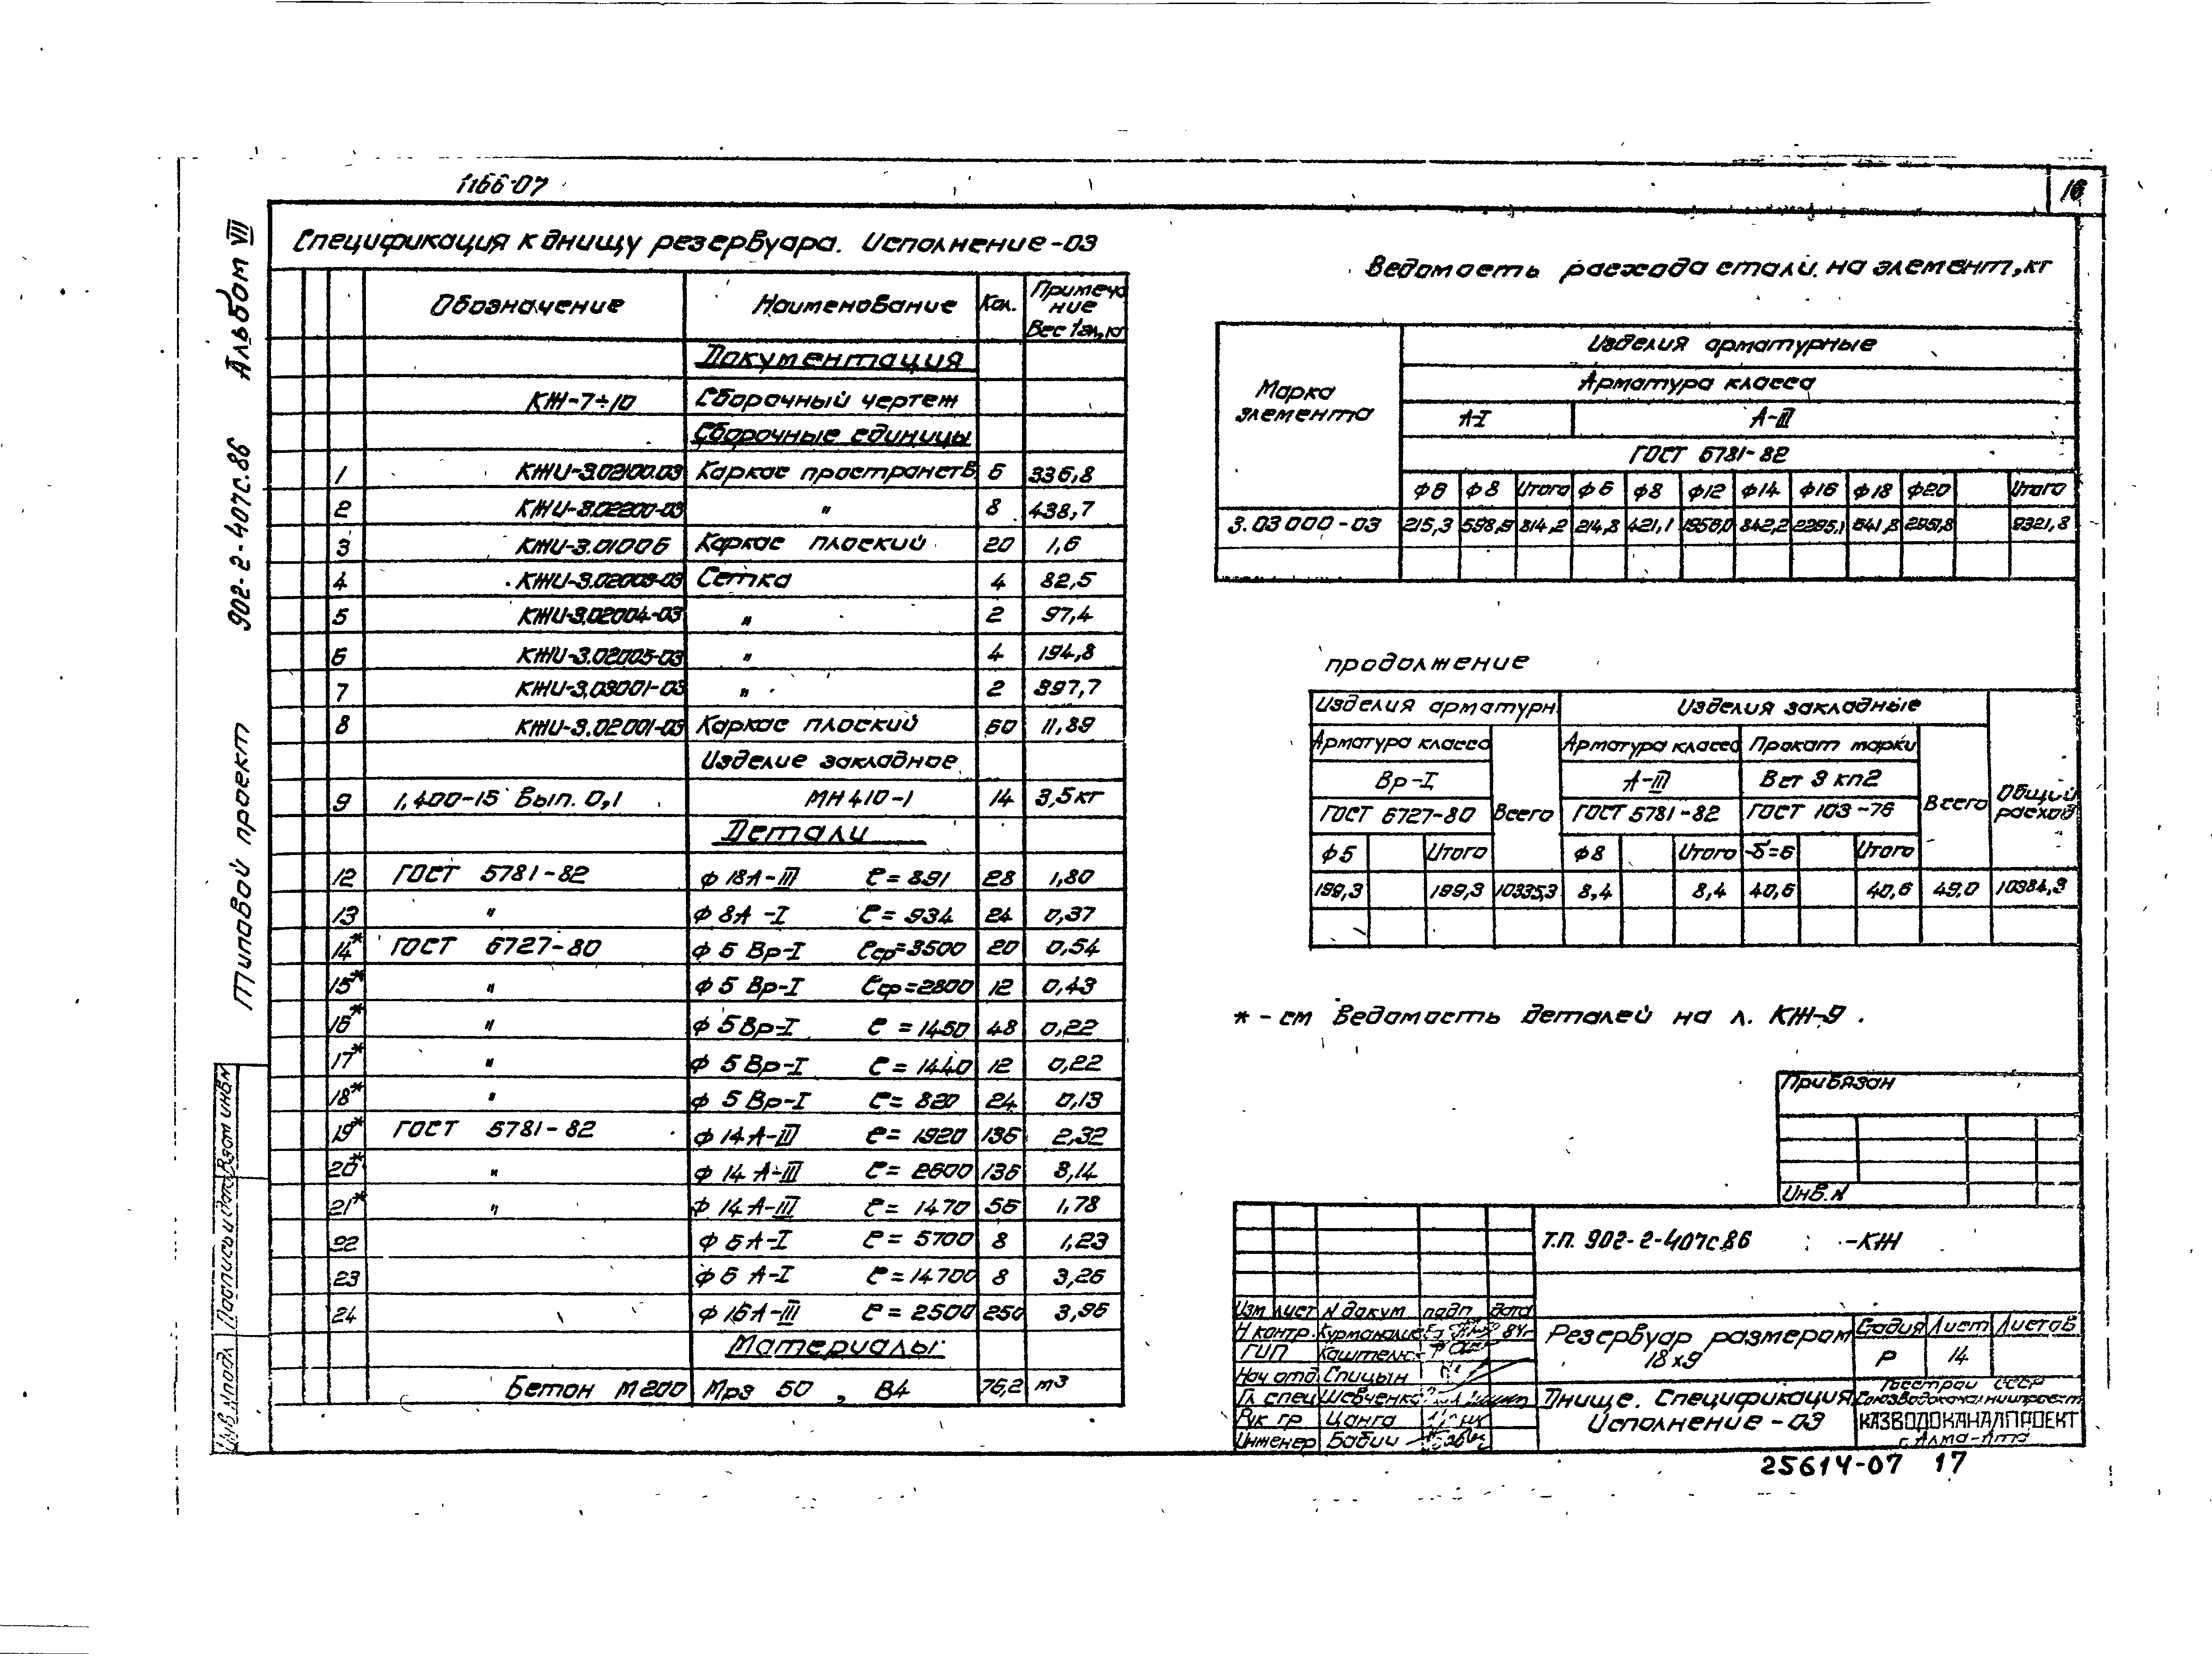 1166-07
16
Альбом VII
902-2-407с.86
Типовой проект
Спецификация к днищу резервуара. Исполнение-03
Обозначение Наименование Кол. Примеча
ние
Вес 1эл, кг
Документация
КЖ-7÷10 Сборочный чертеж
Сборочные единицы
1 КЖИ-3.02100.03 Каркас пространств 6 336,8
2 КЖИ-3.02200-03 " 8 438,7
3 КЖИ-3.01006 Каркас плоский 20 1,6
4 КЖИ-3.02003-03 Сетка 4 82,5
5 КЖИ-3.02004-03 " 2 97,4
6 КЖИ-3.02005-03 " 4 194,8
7 КЖИ-3.03001-03 " 2 397,7
8 КЖИ-3.02001-03 Каркас плоский 60 11,89
Изделие закладное
9 1,400-15 Вып. 0,1 МН 410-1 14 3,5кг
Детали
12 ГОСТ 5781-82 ф 18А-III ℓ=891 28 1,80
13 " ф 8А-I ℓ=934 24 0,37
14* ГОСТ 6727-80 ф 5 Вр-I ℓср=3500 20 0,54
15* " ф 5 Вр-I ℓср=2800 12 0,43
16* " ф 5 Вр-I ℓ=1450 48 0,22
17* " ф 5 Вр-I ℓ=1440 12 0,22
18* " ф 5 Вр-I ℓ=820 24 0,13
19* ГОСТ 5781-82 ф 14 А-III ℓ=1920 136 2,32
20* " ф 14 А-III ℓ=2600 136 3,14
21* " ф 14 А-III ℓ=1470 56 1,78
22 ф 6 А-I ℓ=5700 8 1,23
23 ф 6 А-I ℓ=14700 8 3,26
24 ф 16 А-III ℓ=2500 250 3,96
Материалы:
Бетон М200 Мрз 50, В4 76,2 м3
Ведомость расхода стали на элемент, кг
Марка
элемента
Изделия арматурные
Арматура класса
А-I А-III
ГОСТ 5781-82
ф6 ф8 Итого ф6 ф8 ф12 ф14 ф16 ф18 ф20 Итого
3.03000-03 215,3 598,9 814,2 214,8 421,1 1956,0 842,2 2295,1 641,8 2951,8 9321,8
продолжение
Изделия арматурн. Изделия закладные
Арматура класса Арматура класса Прокат марки
Вр-I А-III Вст 3 кп2
ГОСТ 6727-80 Всего ГОСТ 5781-82 ГОСТ 103-76 Всего Общий
расход
ф5 Итого ф8 Итого -δ=6 Итого
199,3 199,3 10335,3 8,4 8,4 40,6 40,6 49,0 10384,3
* - см Ведомость деталей на л. КЖ-9.
Привязан
Инв. N
Т.П. 902-2-407с.86 -КЖ
Изм лист N докум подп дата
Н контр. 84г
ГИП
Нач отд Спицын
Гл спец Шевченко
Рук гр Цанга
Инженер Бабич
Резервуар размером
18х9
Стадия Лист Листов
Р 14
Днище. Спецификация
Исполнение-03
Госстрой СССР
Союзводоканалниипроект
КАЗВОДОКАНАЛПРОЕКТ
г. Алма-Ата
Взам инв N
Подпись и дата
Инв. N подл
25614-07 17